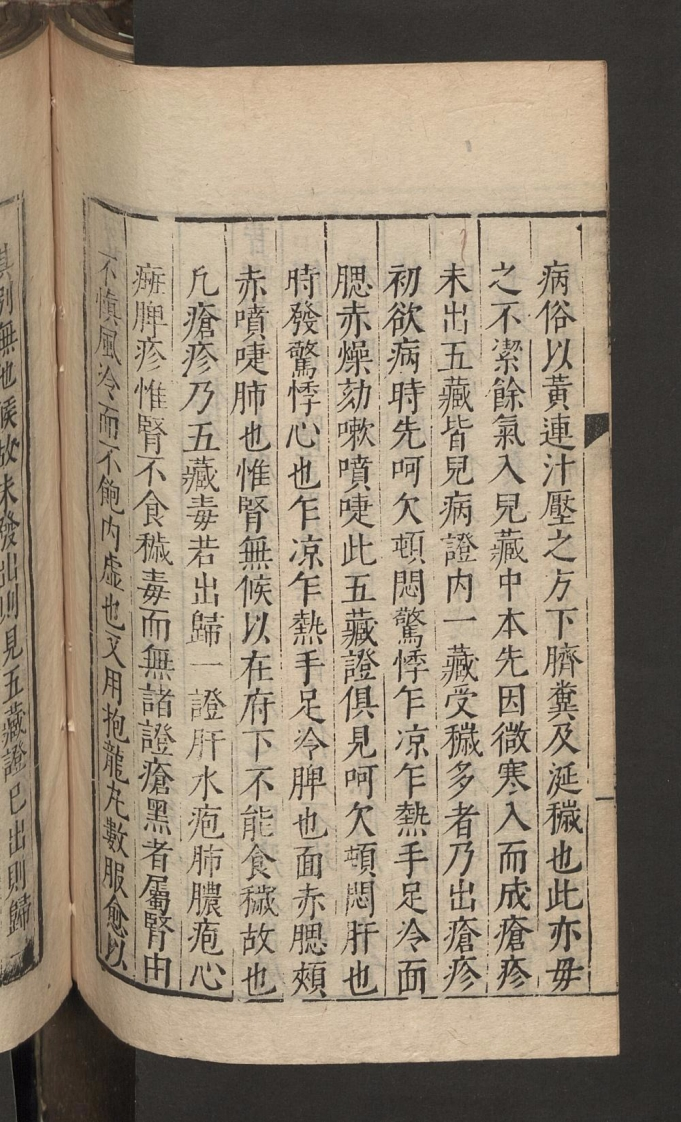 病俗以黃連汁壓之方下臍糞及涎穢也此亦毋
之不潔餘氣入兒藏中本先因微寒入而成瘡疹
未出五藏皆見病證內一藏受穢多者乃出瘡疹
初欲病時先呵欠頓悶驚悸乍凉乍熱手足冷面
腮赤燥𠡠嗽噴嚏此五藏證俱見呵欠頓悶肝也
時發驚悸心也乍凉乍熱手足冷脾也面赤腮頰
赤噴嚏肺也惟腎無候以在府下不能食穢故也
凡瘡疹乃五藏毒若出歸一證肝水疱肺膿疱心
癍脾疹惟腎不食穢毒而無諸證瘡黑者屬腎由
不慎風冷而不飽內虛也又用抱龍丸數服愈以
其別無他候故未發出則見五藏證已出則歸